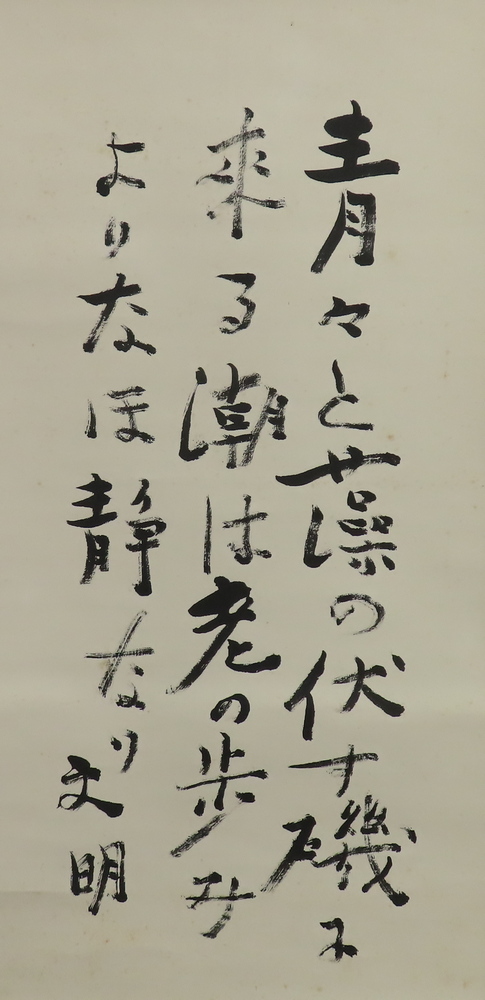 青々と藻の伏す磯に
来る潮は老の歩み
よりなほ静なり
文明